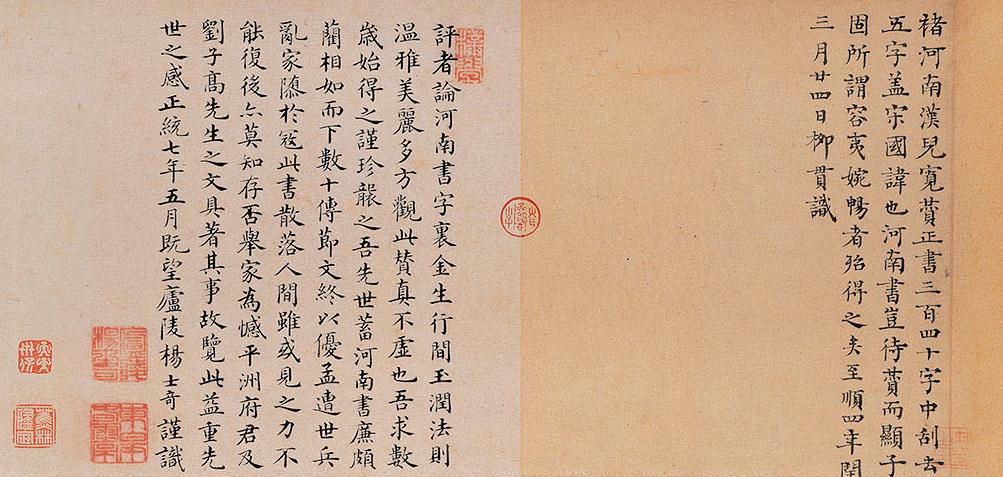 褚河南漢兒寬贊正書三百四十字中刮去
五字盖宋國諱也河南書豈待贊而顯子
固所謂容夷婉暢者殆得之矣至順四年閏
三月廿四日柳貫識
評者論河南書字裏金生行間玉潤法則
溫雅美麗多方觀此贊真不虛也吾求數
歲始得之謹珍襲之吾先世蓄河南書廉頗
藺相如而下數十傳節文終以優孟遭世兵
亂家隳於寇此書散落人間雖或見之力不
能復後亦莫知存否舉家為憾平洲府君及
劉子髙先生之文具著其事故覽此益重先
世之感正統七年五月既望廬陵楊士奇謹識